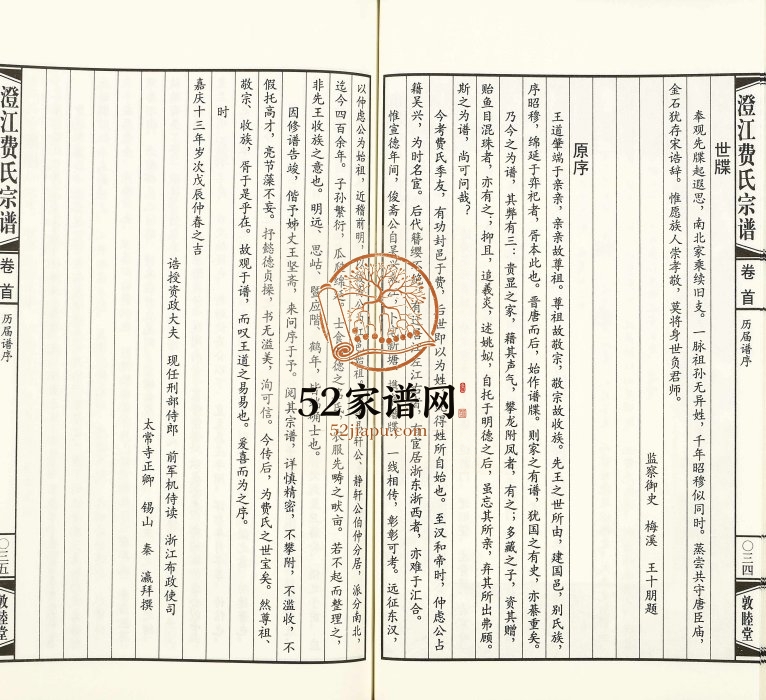 澄江费氏宗谱
卷首
历届谱序
〇三四
敦睦堂
世牒
奉观先牒起遐思，南北家乘续旧支。一脉祖孙无异姓，千年昭穆似同时。蒸尝共守唐臣庙，
金石犹存宋诰辞。惟愿族人崇孝敬，莫将身世负君师。
监察御史 梅溪 王十朋题
原序
王道肇端于亲亲，亲亲故尊祖。尊祖故敬宗，敬宗故收族。先王之世所由，建国邑，别氏族，
序昭穆，绵延于弈祀者，胥本此也。晋唐而后，始作谱牒。则家之有谱，犹国之有史，亦綦重矣。
乃今之为谱，其弊有三：贵显之家，藉其声气，攀龙附凤者，有之；多藏之子，资其赠，
贻鱼目混珠者，亦有之；抑且，追羲炎，述姚姒，自托于明德之后，虽忘其所亲，弃其所出弗顾。
斯之为谱，尚可问哉？
今考费氏季友，有功封邑于费，后世即以为姓，得姓所自始也。至汉和帝时，仲虑公占
籍吴兴，为时名宦。后代簪缨 有 江左江右 宦居浙东浙西者，亦难于汇合。
惟宣德年间，俊斋公自吴 新塘，携 谱牒，一线相传，彰彰可考。远征东汉，
以仲虑公为始祖，近稽前明， 公为 始祖 轩公、静轩公伯仲分居，派分南北，
迄今四百余年。子孙繁衍，瓜 士食 德之 服先畴之畎亩。若不起而整理之，
非先王收族之意也。明远、思岵、暨应阶、鹤年，皆 士也。
因修谱告竣，偕予姊丈王坚斋，来问序于予。阅其宗谱，详慎精密，不攀附，不滥收，不
假托高才，亮节藻不妄。抒懿德贞操，书无溢美，洵可信。今传后，为费氏之世宝矣。然尊祖、
敬宗、收族，胥于是乎在。故观于谱，而叹王道之易易也。爰喜而为之序。
时
嘉庆十三年岁次戊辰仲春之吉
诰授资政大夫 现任刑部侍郎 前军机侍读 浙江布政使司
太常寺正卿 锡山 秦 瀛拜撰
澄江费氏宗谱
卷首
历届谱序
〇三五
敦睦堂
52家谱网
52jiapu.com